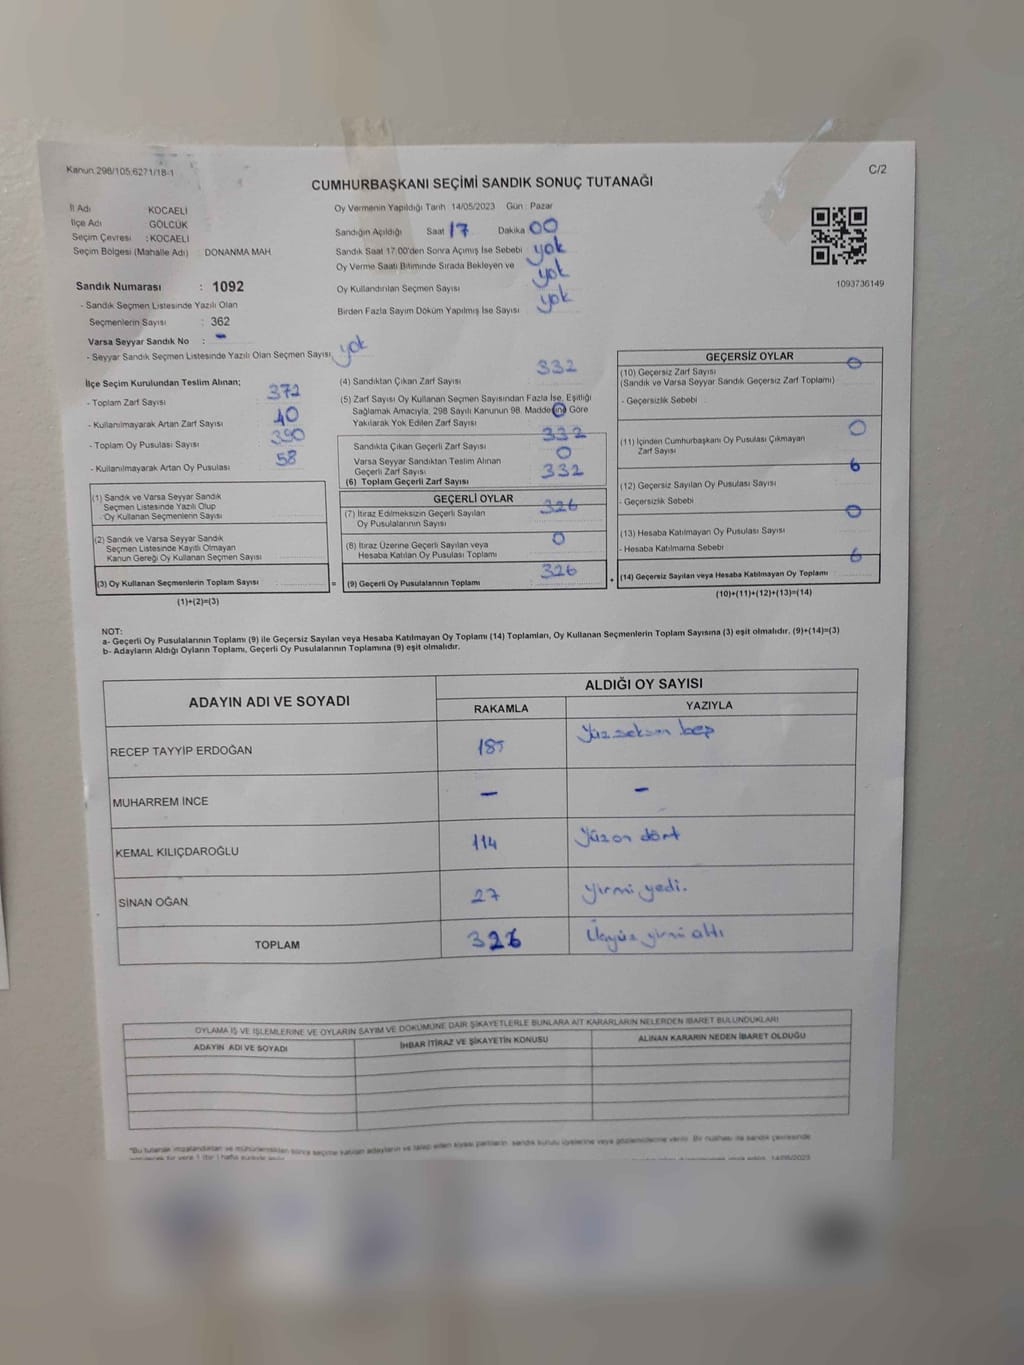 Kanun.298/105,6271/18-1
C/2
CUMHURBAŞKANI SEÇİMİ SANDIK SONUÇ TUTANAĞI
İl Adı KOCAELİ
İlçe Adı GÖLCÜK
Seçim Çevresi : KOCAELİ
Seçim Bölgesi (Mahalle Adı) DONANMA MAH
Sandık Numarası : 1092
- Sandık Seçmen Listesinde Yazılı Olan
Seçmenlerin Sayısı : 362
Varsa Seyyar Sandık No : -
- Seyyar Sandık Seçmen Listesinde Yazılı Olan Seçmen Sayısı yok
Oy Vermenin Yapıldığı Tarih :14/05/2023 Gün : Pazar
Sandığın Açıldığı Saat 17 Dakika 00
Sandık Saat 17:00'den Sonra Açımış İse Sebebi yok
Oy Verme Saati Bitiminde Sırada Bekleyen ve
Oy Kullandırılan Seçmen Sayısı yok
Birden Fazla Sayım Döküm Yapılmış İse Sayısı yok
1093736149
İlçe Seçim Kurulundan Teslim Alınan;
- Toplam Zarf Sayısı 372
- Kullanılmayarak Artan Zarf Sayısı 40
- Toplam Oy Pusulası Sayısı 390
- Kullanılmayarak Artan Oy Pusulası 58
(1) Sandık ve Varsa Seyyar Sandık
Seçmen Listesinde Yazılı Olup
Oy Kullanan Seçmenlerin Sayısı
(2) Sandık ve Varsa Seyyar Sandık
Seçmen Listesinde Kayıtlı Olmayan
Kanun Gereği Oy Kullanan Seçmen Sayısı
(3) Oy Kullanan Seçmenlerin Toplam Sayısı =
(1)+(2)=(3)
(4) Sandıktan Çıkan Zarf Sayısı 332
(5) Zarf Sayısı Oy Kullanan Seçmen Sayısından Fazla İse, Eşitliği
Sağlamak Amacıyla, 298 Sayılı Kanunun 98. Maddesine Göre
Yakılarak Yok Edilen Zarf Sayısı 0
Sandıkta Çıkan Geçerli Zarf Sayısı 332
Varsa Seyyar Sandıktan Teslim Alınan
Geçerli Zarf Sayısı 0
(6) Toplam Geçerli Zarf Sayısı 332
GEÇERLİ OYLAR
(7) İtiraz Edilmeksizin Geçerli Sayılan
Oy Pusulalarının Sayısı 326
(8) İtiraz Üzerine Geçerli Sayılan veya
Hesaba Katılan Oy Pusulası Toplamı 0
(9) Geçerli Oy Pusulalarının Toplamı 326 +
GEÇERSİZ OYLAR
(10) Geçersiz Zarf Sayısı 0
(Sandık ve Varsa Seyyar Sandık Geçersiz Zarf Toplamı)
- Geçersizlik Sebebi
(11) İçinden Cumhurbaşkanı Oy Pusulası Çıkmayan
Zarf Sayısı 0
(12) Geçersiz Sayılan Oy Pusulası Sayısı 6
- Geçersizlik Sebebi
(13) Hesaba Katılmayan Oy Pusulası Sayısı 0
- Hesaba Katılmama Sebebi
(14) Geçersiz Sayılan veya Hesaba Katılmayan Oy Toplamı 6
(10)+(11)+(12)+(13)=(14)
NOT:
a- Geçerli Oy Pusulalarının Toplamı (9) ile Geçersiz Sayılan veya Hesaba Katılmayan Oy Toplamı (14) Toplamları, Oy Kullanan Seçmenlerin Toplam Sayısına (3) eşit olmalıdır. (9)+(14)=(3)
b- Adayların Aldığı Oyların Toplamı, Geçerli Oy Pusulalarının Toplamına (9) eşit olmalıdır.
ADAYIN ADI VE SOYADI
ALDIĞI OY SAYISI
RAKAMLA YAZIYLA
RECEP TAYYİP ERDOĞAN 185 Yüzseksen beş
MUHARREM İNCE - -
KEMAL KILIÇDAROĞLU 114 Yüzon dört
SİNAN OĞAN 27 Yirmi yedi.
TOPLAM 326 Üçyüz yirmi altı
OYLAMA İŞ VE İŞLEMLERİNE VE OYLARIN SAYIM VE DÖKÜMÜNE DAİR ŞİKAYETLERLE BUNLARA AİT KARARLARIN NELERDEN İBARET BULUNDUKLARI
ADAYIN ADI VE SOYADI İHBAR İTİRAZ VE ŞİKAYETİN KONUSU ALINAN KARARIN NEDEN İBARET OLDUĞU
"Bu tutanak imzalandıktan ve mühürlendikten sonra seçime katılan adayların ve talep eden siyasi partilerin, sandık kurulu üyelerine veya gözlemcilerine verilir. Bir nüshası da sandık çevresinde
14/05/2023